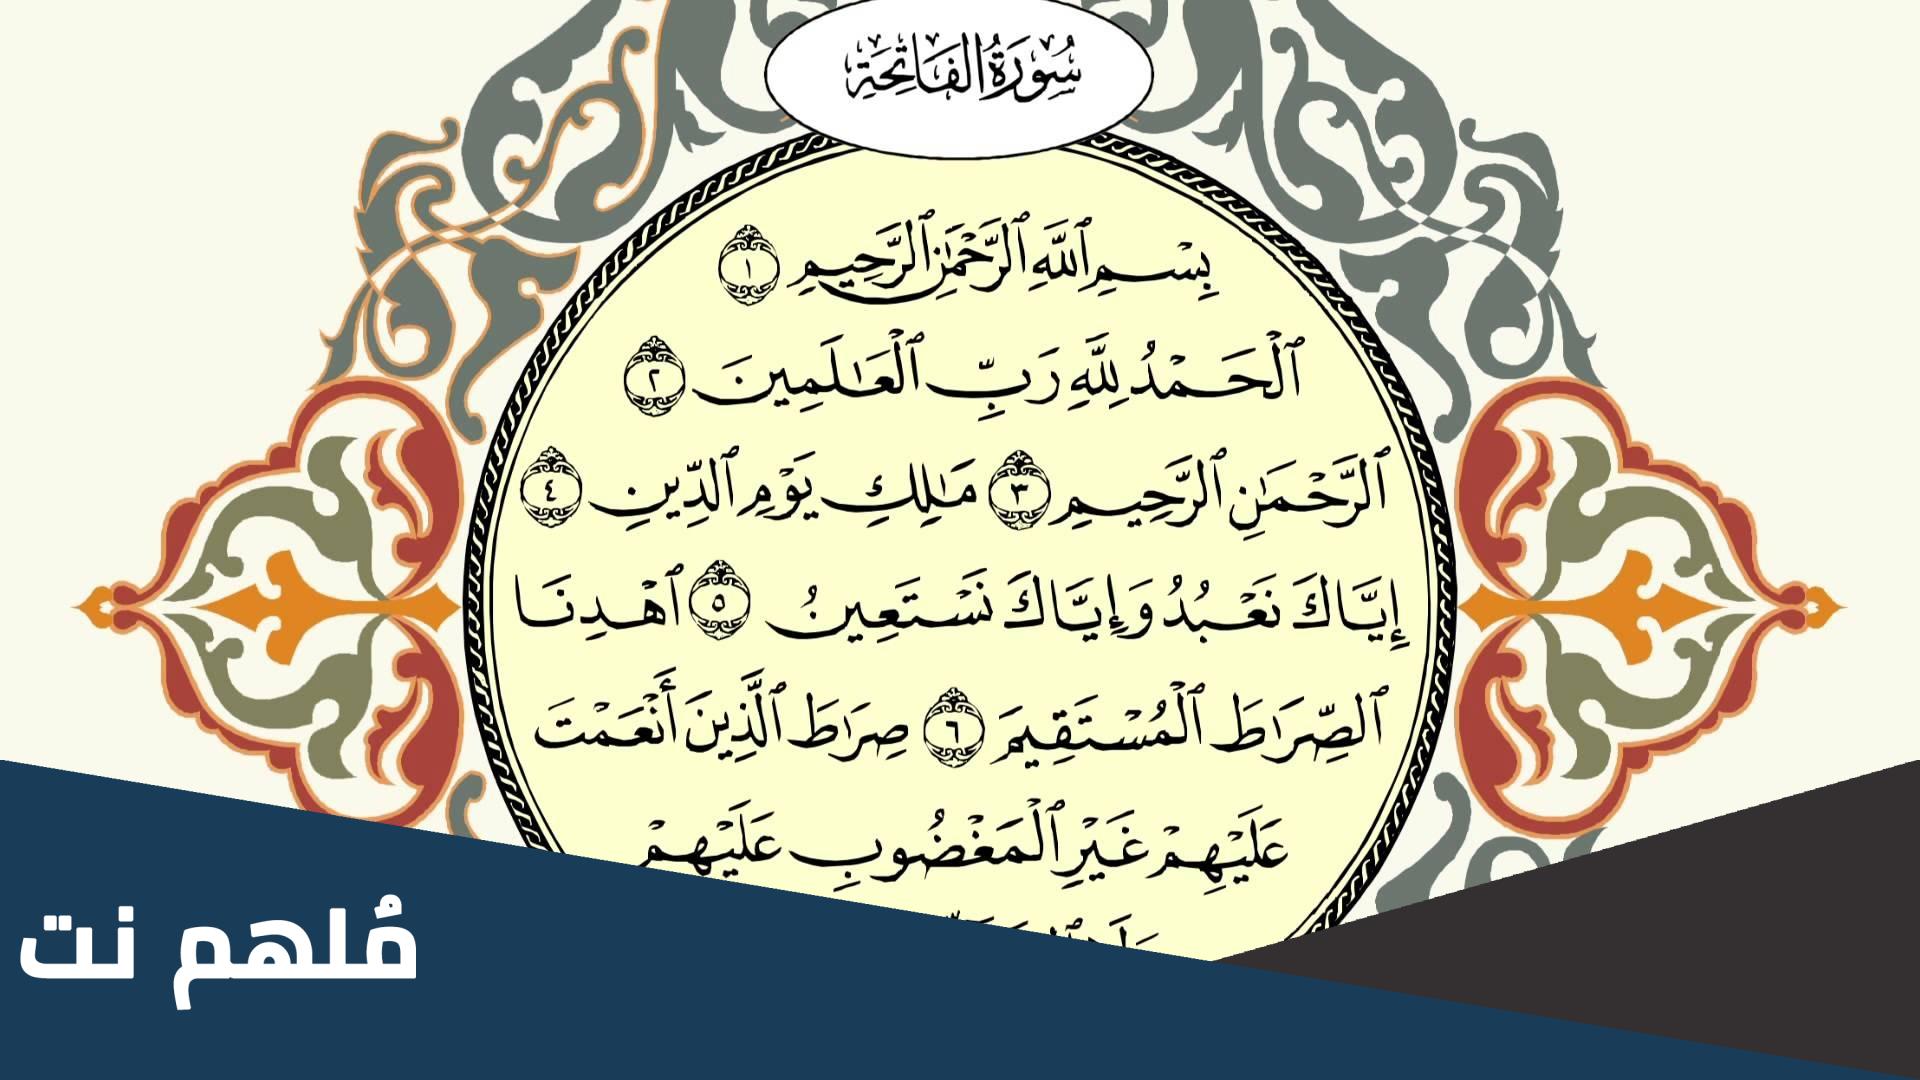 سُورَةُ الفَاتِحَةِ
بِسْمِ ٱللَّهِ ٱلرَّحْمَٰنِ ٱلرَّحِيمِ ١
ٱلْحَمْدُ لِلَّهِ رَبِّ ٱلْعَٰلَمِينَ ٢
ٱلرَّحْمَٰنِ ٱلرَّحِيمِ ٣ مَٰلِكِ يَوْمِ ٱلدِّينِ ٤
إِيَّاكَ نَعْبُدُ وَإِيَّاكَ نَسْتَعِينُ ٥ ٱهْدِنَا
ٱلصِّرَٰطَ ٱلْمُسْتَقِيمَ ٦ صِرَٰطَ ٱلَّذِينَ أَنْعَمْتَ
عَلَيْهِمْ غَيْرِ ٱلْمَغْضُوبِ عَلَيْهِمْ
مُلهم نت